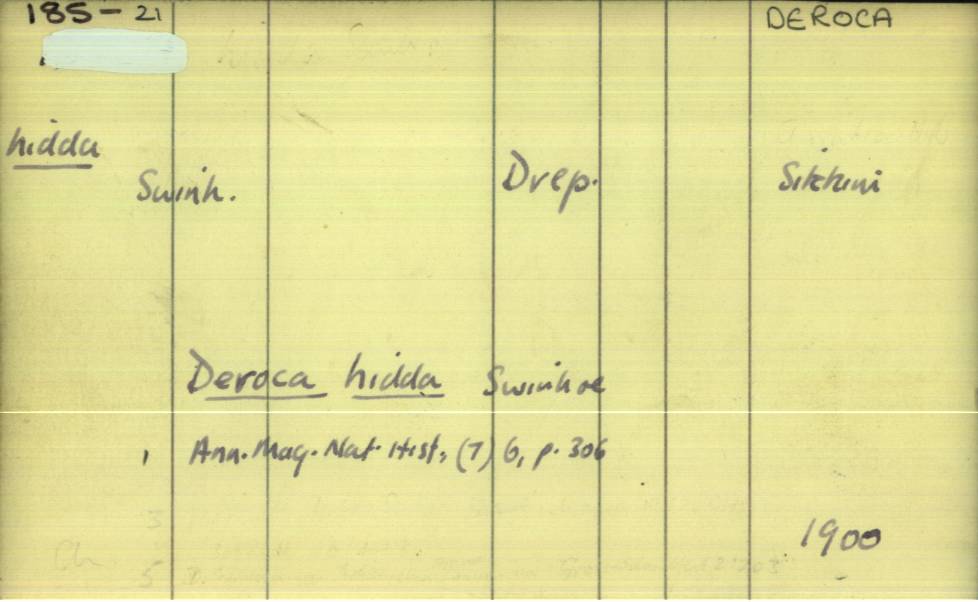 185-21
DEROCA
hidda
Swinh. Drep. Sikkim
Deroca hidda Swinhoe
Ann. Mag. Nat. Hist, (7) 6, p. 306
1900
3
5